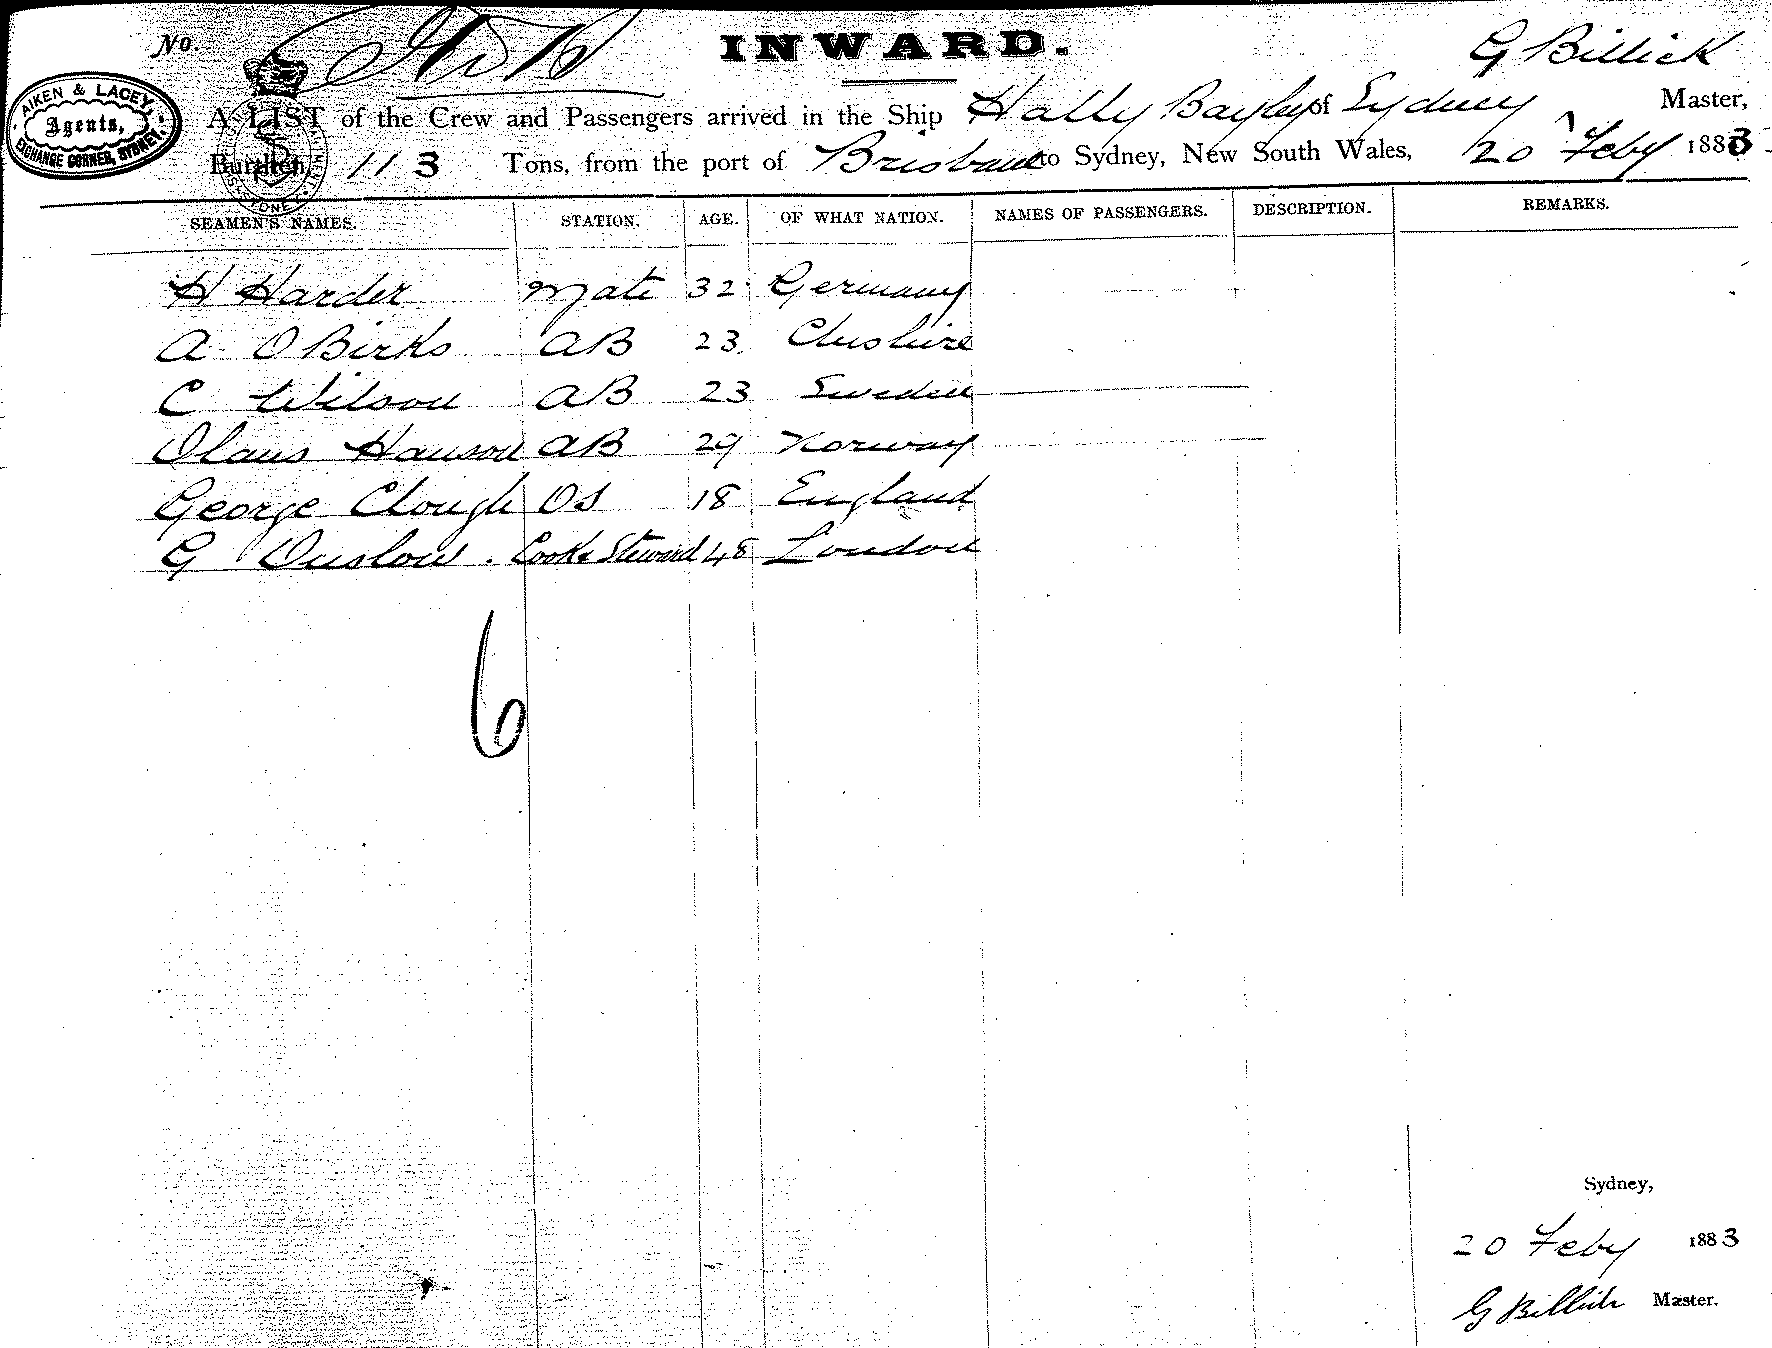 No.
INWARD.
G Billick
AIKEN & LACEY,
Agents,
EXCHANGE CORNER, SYDNEY.
A LIST of the Crew and Passengers arrived in the Ship Hally Bayley of Sydney Master,
Burthen, 113 Tons, from the port of Brisbane to Sydney, New South Wales, 20 Feby 1883
SEAMEN'S NAMES. STATION. AGE. OF WHAT NATION. NAMES OF PASSENGERS. DESCRIPTION. REMARKS.
H Harder Mate 32 Germany
A O Birks AB 23 Cheshire
C Wilson AB 23 Sweden
Olaus Hanson AB 29 Norway
George Clough OS 18 England
G Onslow. Cook & Steward 48 London
6
Sydney,
20 Feby 1883
G Billick Master.